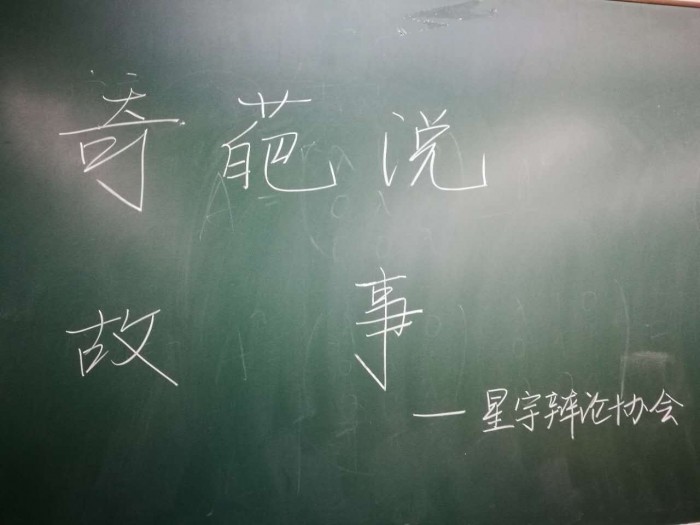 奇葩说
故事
—星宇辩论协会